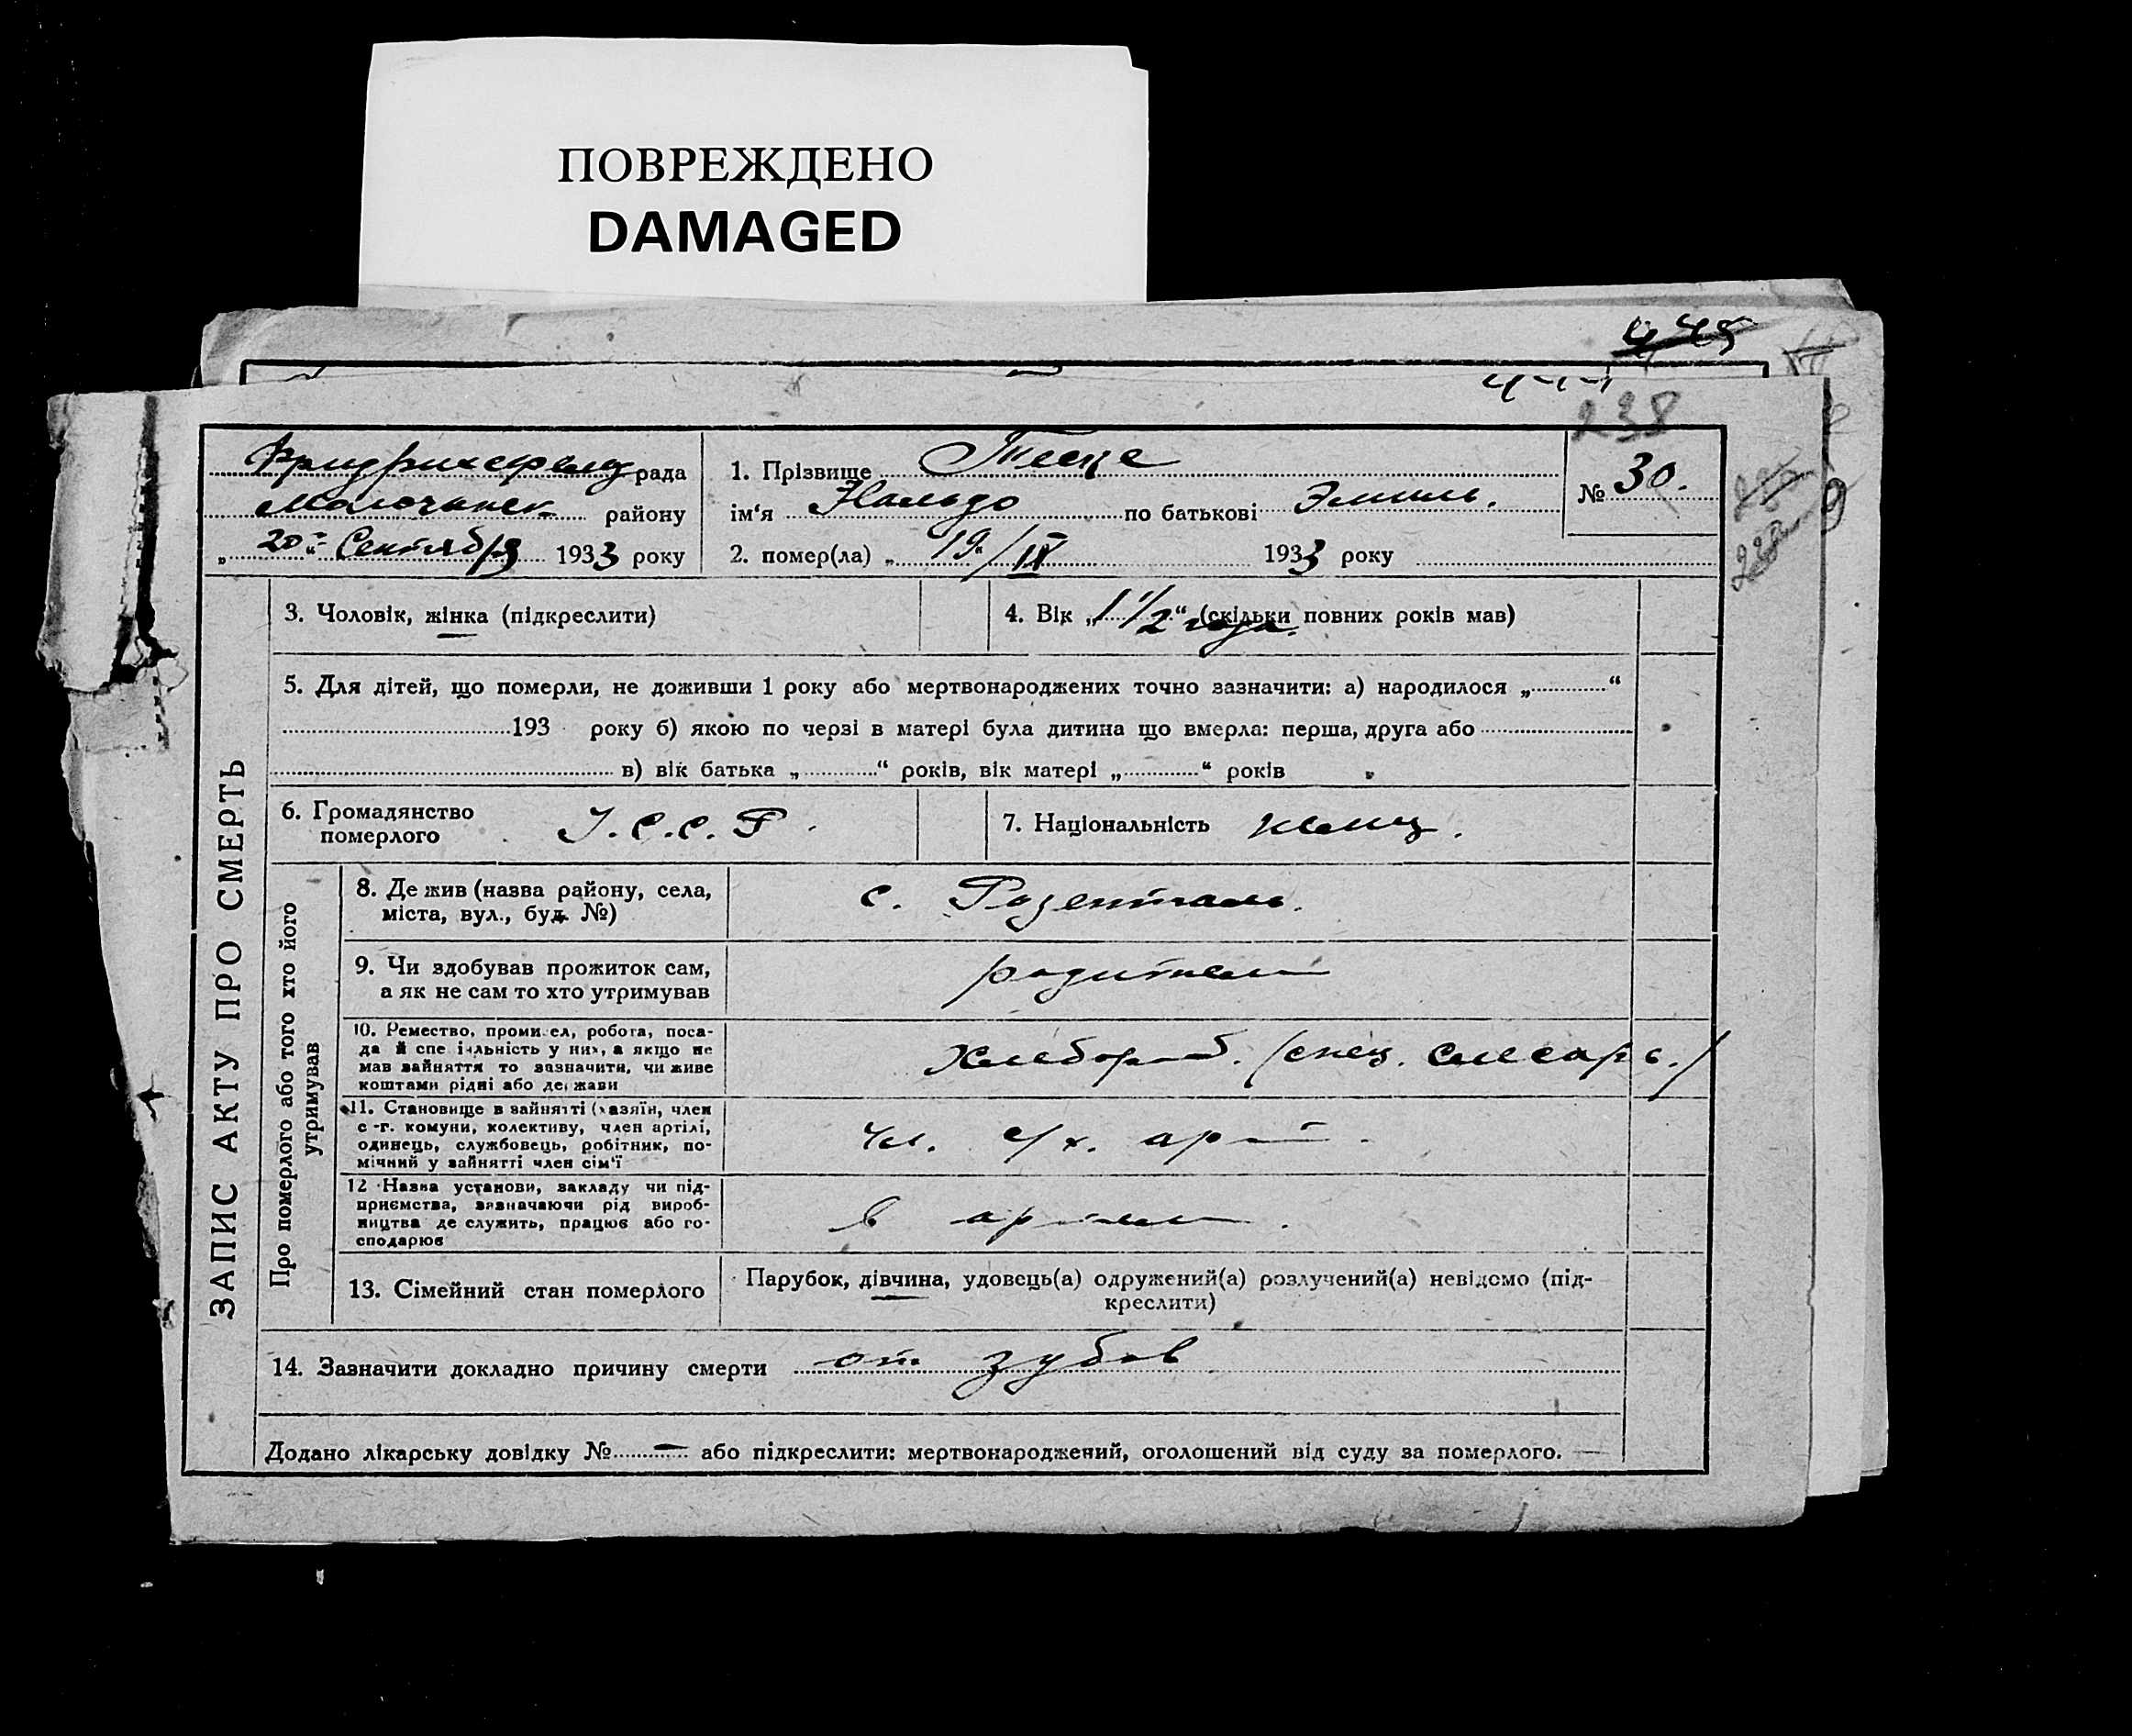 ПОВРЕЖДЕНО
DAMAGED
238
Фридрихсфельд рада
Молочанск. району
„20“ Сентября 1933 року
1. Прізвище
ім‘я Нальдо по батькові Эмиль.
2. помер(ла) „19“/IX 1933 року
№ 30.
3. Чоловік, жінка (підкреслити)
4. Вік „1 1/2“ года. (скільки повних років мав)
5. Для дітей, що померли, не доживши 1 року або мертвонароджених точно зазначити: а) народилося „ “
193 року б) якою по черзі в матері була дитина що вмерла: перша, друга або
в) вік батька „ “ років, вік матері „ “ років
6. Громадянство
померлого
У.С.С.Р.
7. Національність немц.
ЗАПИС АКТУ ПРО СМЕРТЬ
Про померлого або того хто його
утримував
8. Де жив (назва району, села,
міста, вул., буд. №)
с. Розенталь.
9. Чи здобував прожиток сам,
а як не сам то хто утримував
родители
10. Ремество, промисел, робота, поса-
да й спеціяльність у них, а якщо не
мав зайняття то зазначити, чи живе
коштами рідні або держави
Хлебороб. /спец. слесарь./
11. Становище в зайнятті (хазяїн, член
с-г. комуни, колективу, член артілі,
одинець, службовець, робітник, по-
мічний у зайнятті член сім‘ї
чл. с/х. арт.
12 Назва установи, закладу чи під-
приємства, зазначаючи рід вироб-
ництва де служить, працює або го-
сподарює
в артели.
13. Сімейний стан померлого
Парубок, дівчина, удовець(а) одружений(а) розлучений(а) невідомо (під-
креслити)
14. Зазначити докладно причину смерти от зубов
Додано лікарську довідку № — або підкреслити: мертвонароджений, оголошений від суду за померлого. —